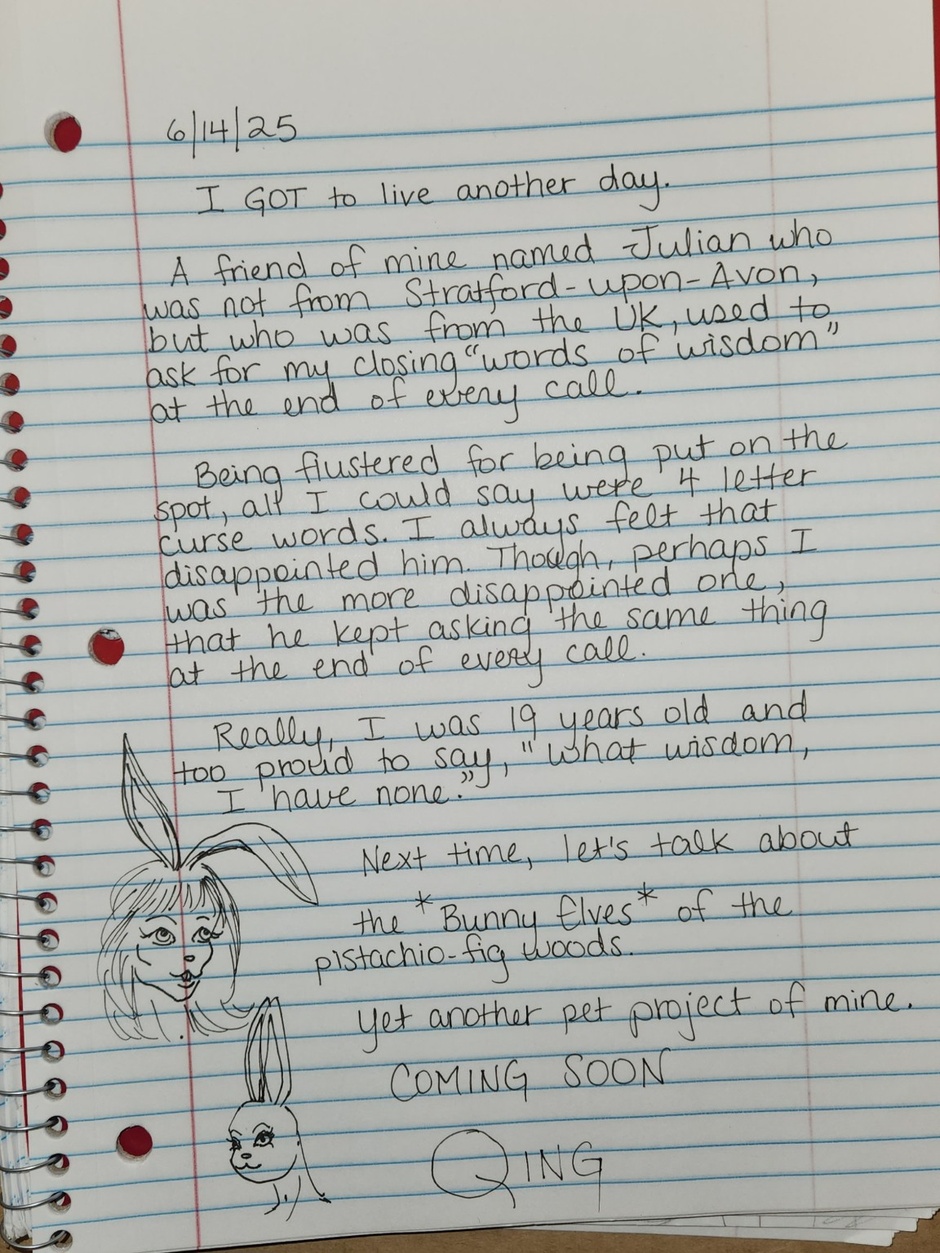 6/14/25
I GOT to live another day.
A friend of mine named Julian who
was not from Stratford-upon-Avon,
but who was from the UK, used to
ask for my closing "words of wisdom"
at the end of every call.
Being flustered for being put on the
spot, all I could say were 4 letter
curse words. I always felt that
disappointed him. Though, perhaps I
was the more disappointed one,
that he kept asking the same thing
at the end of every call.
Really, I was 19 years old and
too proud to say, "what wisdom,
I have none."
Next time, let's talk about
the *Bunny Elves* of the
pistachio-fig woods.
Yet another pet project of mine.
COMING SOON
QING